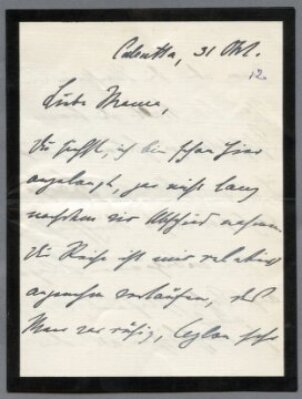 Calcutta, 31 Okt.
12.
Liebe Mama,
Du siehst, ich bin schon hier
angelangt, gar nicht lang
nachdem wir Abschied nahmen
Die Reise ist mir relativ
angenehm verlaufen, das
Meer war ruhig, Ceylon sehr